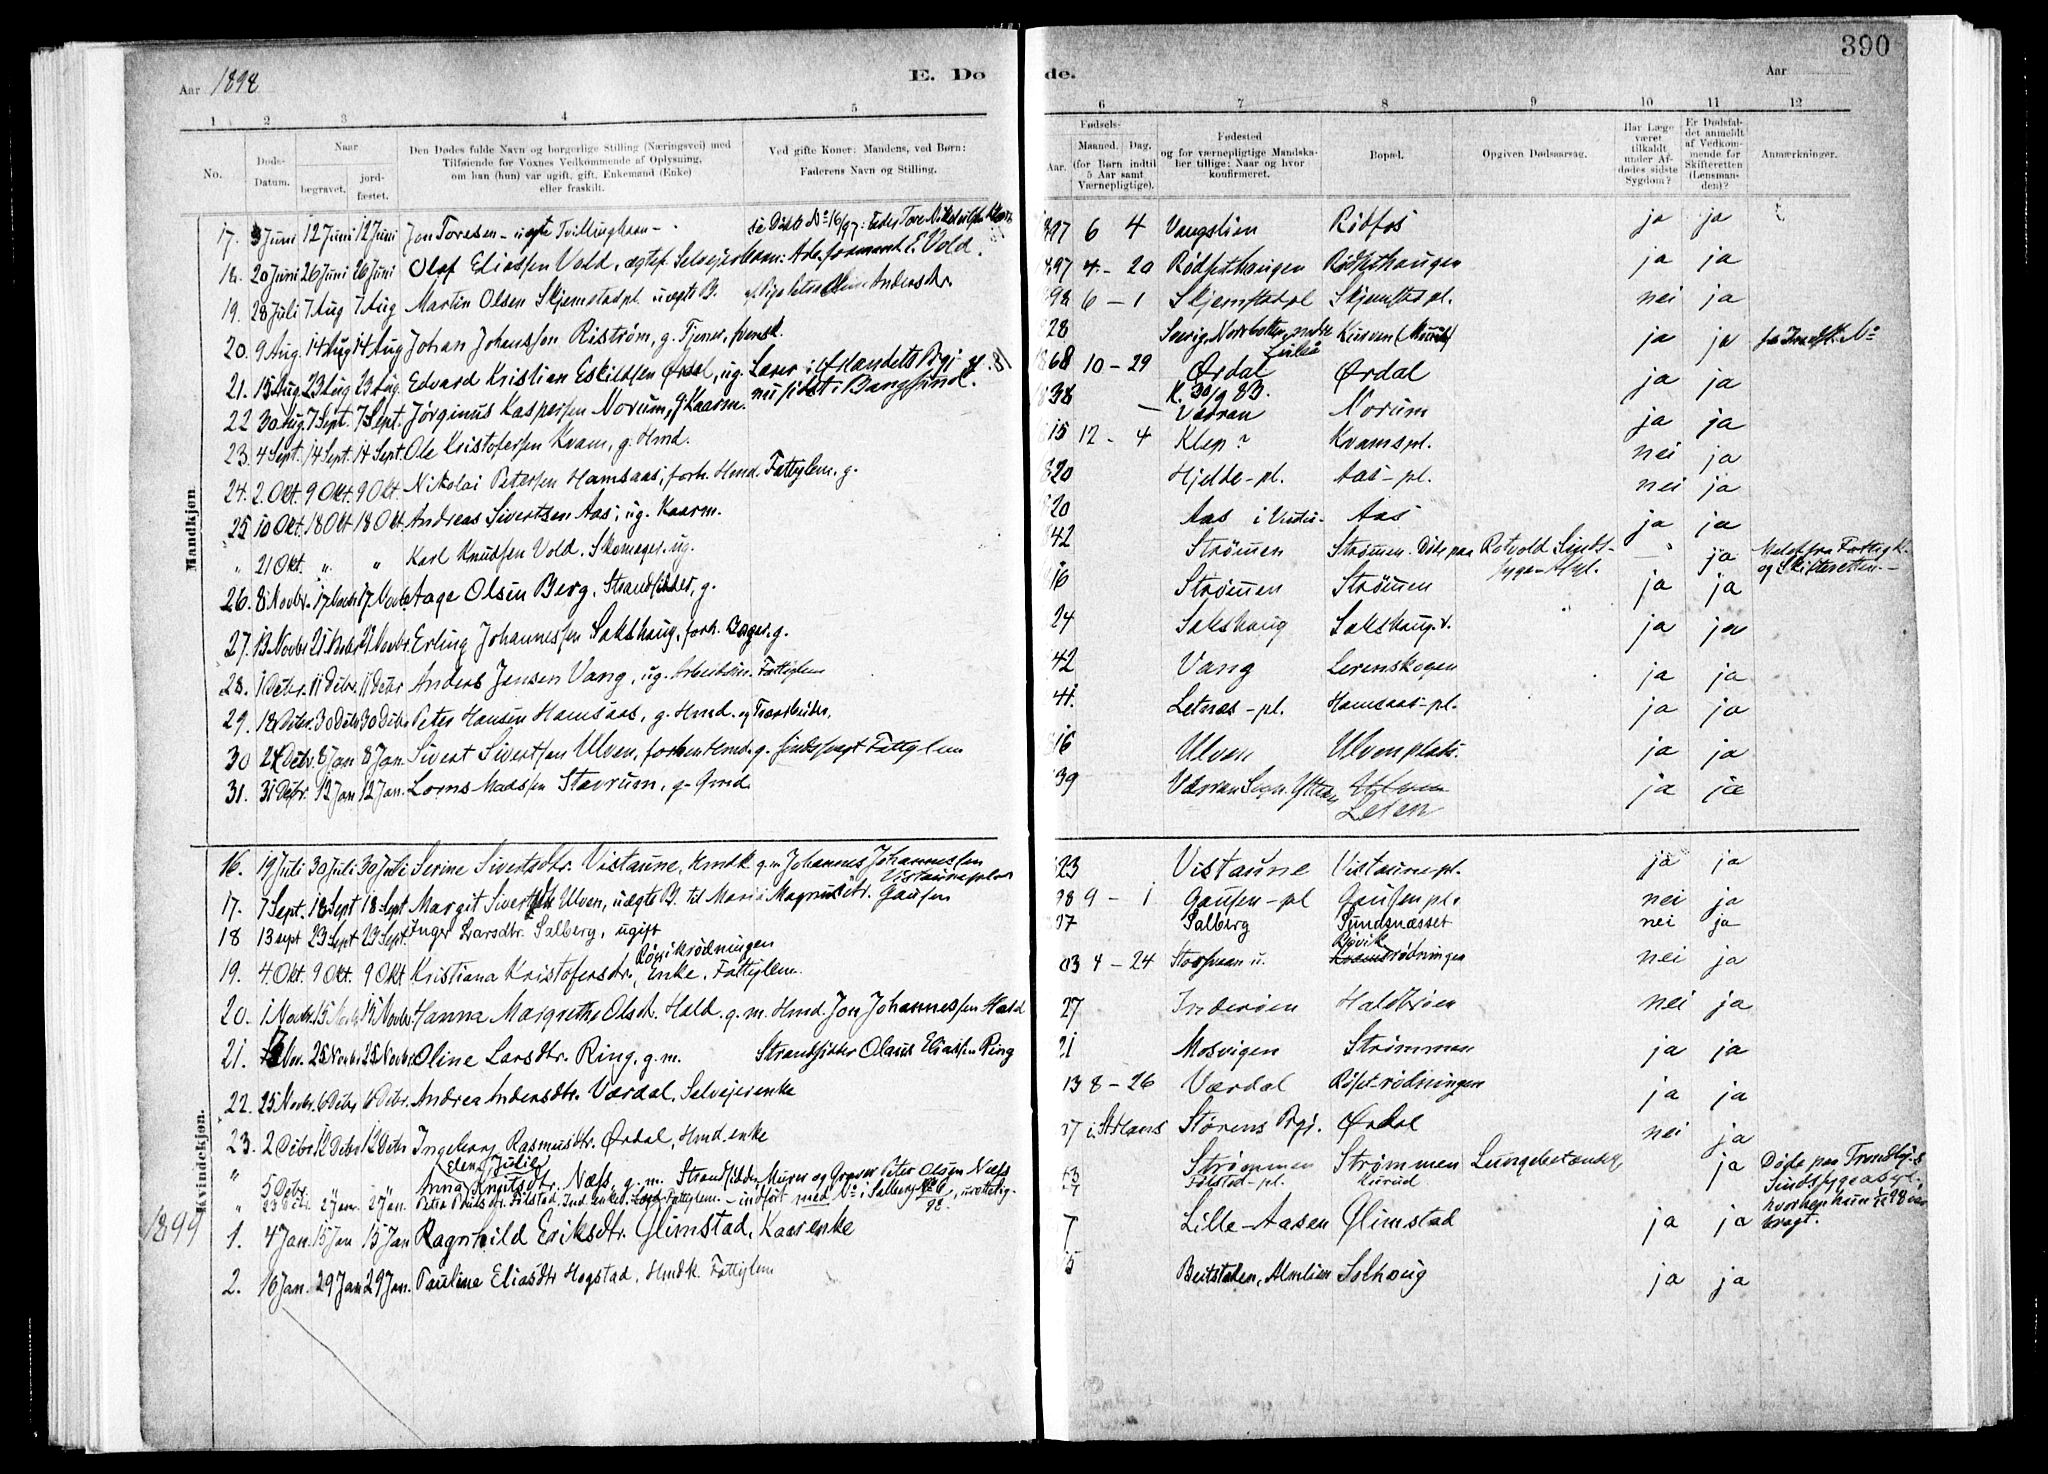 390
Aar 1898 E. Dø de. Aar
1 2 3 4 5 6 7 8 9 10 11 12
No. Døds-Datum. Naar begravet. jord-fæstet. Den Dødes fulde Navn og borgerlige Stilling (Næringsvei) med Tilføiende for Voxnes Vedkommende af Oplysning, om han (hun) var ugift, gift, Enkemand (Enke) eller fraskilt. Ved gifte Koner: Mandens, ved Børn: Faderens Navn og Stilling. Fødsels- Aar. Maaned. Dag. (for Børn indtil 5 Aar samt Værnepligtige). Fødested og for værnepligtige Mandskaber tillige: Naar og hvor konfirmeret. Bopæl. Opgiven Dødsaarsag. Har Læge været tilkaldt under Afdødes sidste Sygdom? Er Dødsfaldet anmeldt af Vedkommende for Skifteretten (Lensmanden)? Anmærkninger.
Mandkjøn
17. 3 Juni 12 Juni 12 Juni Jon Toresen - uægte Tvillingbarn - se Daab No 16/97: 97 6 4 Vangslien Rødfos ja ja
18. 20 Juni 26 Juni 26 Juni Olaf Eliassen Vold, ægtef. Selveierbarn: Arb. formand E. Vold. 97 4 - 20 Rødsethaugen Rødsethaugen ja ja
19. 28 Juli 7 Aug 7 Aug Martin Olsen Skjemstadpl. uægte B. Andersdtr. 98 6 - 1 Skjemstadpl Skjemstadpl. nei ja
20. 9 Aug. 14 Aug 14 Aug Johan Johanssen Riström, g. Tjener, svensk. 28 Sverig, Norrbotten, nedre Luleå Kurven ja ja
21. 15 Aug. 23 Aug. 23 Aug. Edvard Kristian Eskildsen Ørdal, ug. Lærer i 68 10 - 29 Ørdal K. 30/9 83. Ørdal ja ja
22 30 Aug. 7 Sept. 7 Sept. Jørginus Kaspersen Norum, g Kaarm. 38 - Værran Norum ja ja
23. 4 Sept. 14 Sept. 14 Sept. Ole Kristofersen Kvam, g. Hmd. 15 12 - 4 Klep? Kvamspl. nei ja
24. 2. Okt. 9 Okt. 9 Okt Nikolai Petersen Hamsaas, forh. Hmd. Fattiglem. g. 20 Hjelde-pl. Aas-pl. nei ja
25 10 Okt. 18 Okt 18 Okt. Andreas Sivertsen Aas, ug. Kaarm. 20 Aas Aas ja ja
" 21 Okt. " " Karl Knudsen Vold. Skomager. ug. 42 Strømmen Strømmen. Døde paa Rotvold Sindssyge-Asyl. - ja Meldt fra Fattigk. og Skifteretten. -
26. 8 Novbr. 17 Novbr 17 Novbr Aage Olsen Berg. Strandsidder, g. 16 Strømmen Strømmen ja ja
27. 13 Novbr 21 Novbr 21 Novbr. Erling Johannessen Sakshaug, forh. Bager. g. 24 Sakshaug Sakshaug. v. ja ja
28. 1 Debr. 11 Debr. 11 Debr Anders Jensen Vang, ug. Fattiglem 42 Vang Lerenskogen ja ja
29. 18 Debr. 30 Debr 30 Debr Peter Hansen Hamsaas, g. Hmd. og 41. Letnes-pl. Hamsaas-pl. ja ja
30 24 Debr. 8 Jan 8 Jan. Sivert Sivertsen Ulven, forhen Hmd. g. sindssvagt Fattiglem 16 Ulven Ulvenplads. ja ja
31. 31 Debr. 12 Jan 12 Jan. Lorns Madssen Stavrum, g. Gmd. 39 Værran Sogn. Ytterøen Leten ja ja
Kvindekjøn.
16. 19 Juli 30 Juli 30 Juli Serine Sivertsdtr. Vistaune, Hmdk. g.m Johannes Johannessen Vistauneplads 23 Vistaune Vistaunepl. ja ja
17. 7 Sept. 18 Sept 18 Sept Margit Sivertsdtr Ulven, uægte B. til Marie Magnusdtr. Gausen 98 9 - 1 Gausen-pl Gausenpl. nei ja
18 13 sept 23 Sept 23 Sept. Inger Larsdtr. Salberg, ugift 07 Salberg Sundsnæsset nei ja
19. 4 Okt. 9 Okt. 9 Okt Kristiana Kristofersdtr. Røvikrødningen Enke. Fattiglem. 03 4 - 24 Røvik rødningen nei ja
20. 1 Novbr. 15 Novbr 15 Novbr Hanna Margrethe Olsdt. Hald. g. m. Hmd. Jon Johannessen Hald 27 Inderøen Haldbrien nei ja
21. Nov. 25 Novbr 25 Novbr Oline Larsdtr. Ring, g.m. Strandsidder Olaus Eliassen Ring 21 Mosvigen Strømmen ja ja
22. 25 Novbr. 6 Debr 6 Debr. Andrea Andersdtr. Værdal, Selveierenke 13 8 - 26 Værdal Røset-rødningen ja ja
23. 2 Debr 12 Debr 12 Debr Ingeborg Rasmusdtr. Ørdal, Hmd. enke 17 Størens Prgj. Ørdal nei ja
" 5 Debr. " " Anna Elen Julie Knutsdtr. Næss, g.m. Strandsidder, Murer og Graver Peter Olsen Næss 43 Strømmen Strømmen Lungebetændelse ja Døde paa Trondhj.s Sindssygeasyl, hvorhen hun 98 var bragt.
" 23 Debr. 2 Jan. 2 Jan. Petra Paulsdtr. Folstad. Ind. enke. Fattiglem. - indført med No i Salberg 98. Folstad-pl. Kurud
1899
1. 4 Jan. 15 Jan 15 Jan Ragnhild Eriksdtr. Glimstad, Kaarenke 7 Lille-Aasen Glimstad ja ja
2. 16 Jan. 29 Jan 29 Jan. Pauline Eliasdtr Hogstad. Hmdk. Fattiglem 5 Beitstaden, Almlien Solhaug ja ja